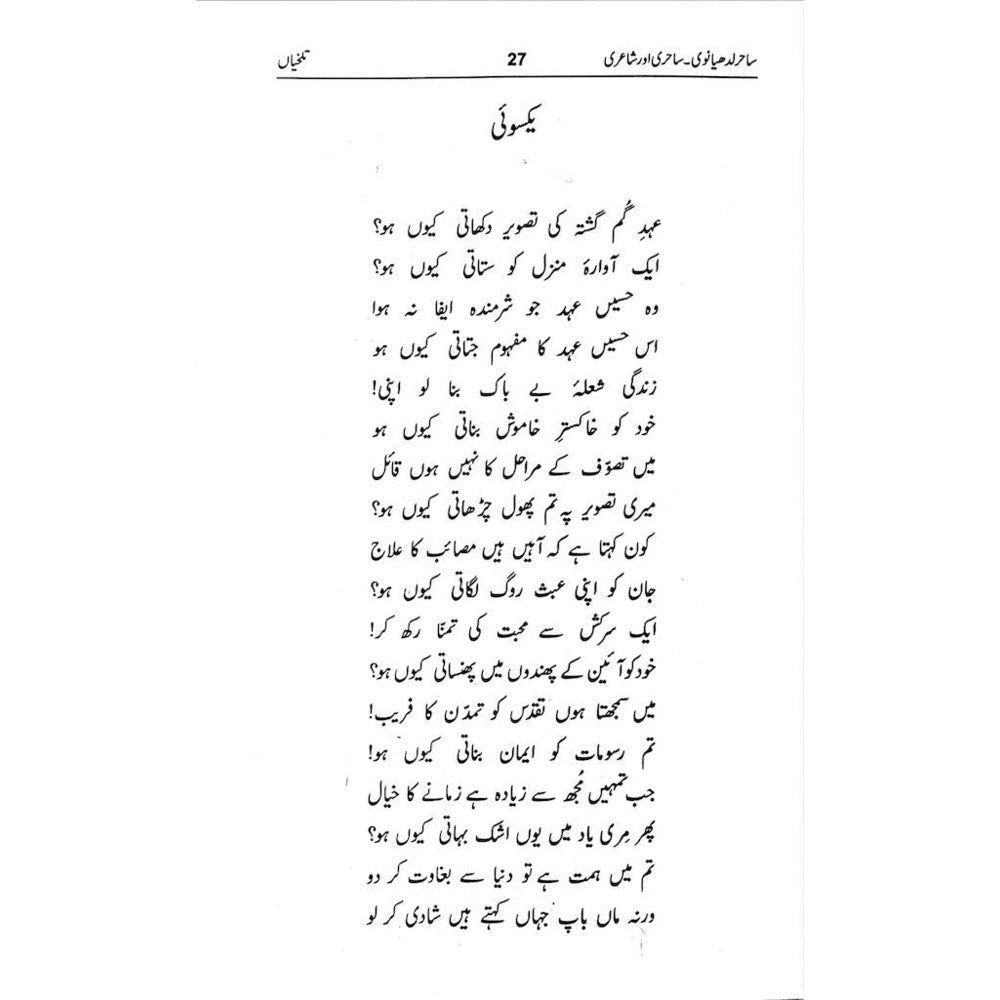 ساحر لدھیانوی۔ ساحری اور شاعری 27 تلخیاں
یکسوئی
عہدِ گُم گشتہ کی تصویر دکھاتی کیوں ہو؟
ایک آوارۂ منزل کو ستاتی کیوں ہو؟
وہ حسیں عہد جو شرمندہ ایفا نہ ہوا
اس حسیں عہد کا مفہوم جتاتی کیوں ہو
زندگی شعلۂ بے باک بنا لو اپنی!
خود کو خاکسترِ خاموش بناتی کیوں ہو
میں تصوّف کے مراحل کا نہیں ہوں قائل
میری تصویر پہ تم پھول چڑھاتی کیوں ہو؟
کون کہتا ہے کہ آہیں ہیں مصائب کا علاج
جان کو اپنی عبث روگ لگاتی کیوں ہو؟
ایک سرکش سے محبت کی تمنّا رکھ کر!
خود کو آئین کے پھندوں میں پھنساتی کیوں ہو؟
میں سمجھتا ہوں تقدّس کو تمدّن کا فریب!
تم رسومات کو ایمان بناتی کیوں ہو!
جب تمہیں مُجھ سے زیادہ ہے زمانے کا خیال
پھر مِری یاد میں یوں اشک بہاتی کیوں ہو؟
تم میں ہمت ہے تو دنیا سے بغاوت کر دو
ورنہ ماں باپ جہاں کہتے ہیں شادی کر لو